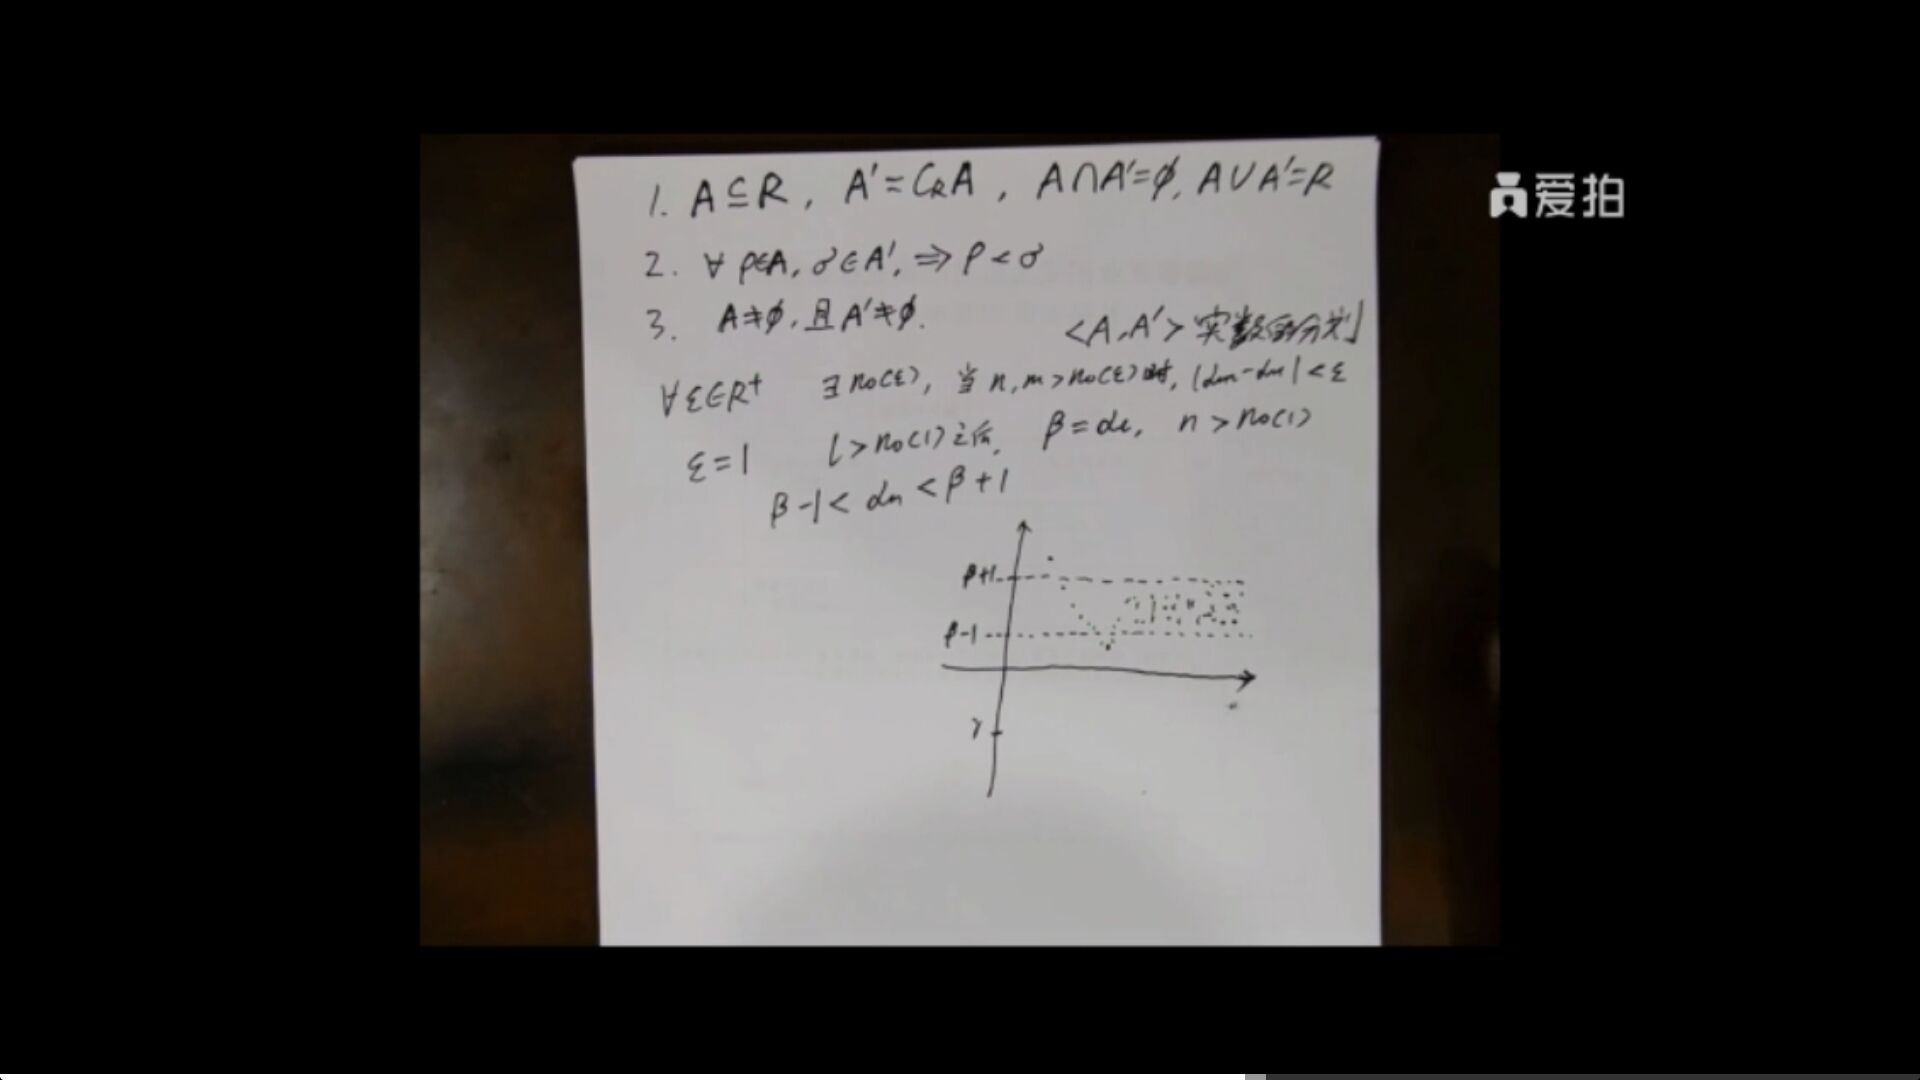 1. A⊆R, A'=C_R A, A∩A'=∅, A∪A'=R
爱拍
2. ∀ρ∈A, σ∈A', ⇒ ρ<σ
3. A≠∅, 且A'≠∅.
<A,A'> 实数的分划
∀ε∈R⁺ ∃n₀(ε), 当n,m>n₀(ε)时, |αn-αm|<ε
ε=1 l>n₀(1)之后, β=αl, n>n₀(1)
β-1<αn<β+1
β+1
β-1
γ